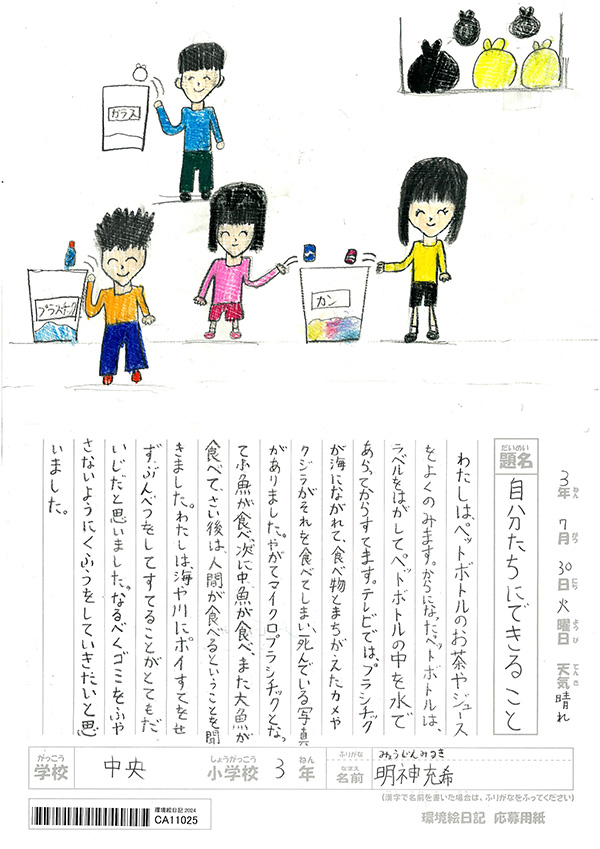 ガラス
プラスチック
カン
3年 7月 30日 火曜日 天気 晴れ
ねん がつ にち ようび てんき
だいめい
題名
自分たちにできること
わたしは、ペットボトルのお茶やジュース
をよくのみます。からになったペットボトルは、
ラベルをはがしてペットボトルの中を水で
あらってからすてます。テレビでは、プラシチック
が海にながれて、食べ物とまちがえたカメや
クジラがそれを食べてしまい、死んでいる写真
がありました。やがてマイクロプラシチックとなっ
て小魚が食べ、次に中魚が食べ、また大魚が
食べて、さい後は、人間が食べるということを聞
きました。わたしは海や川にポイすてをせ
ずぶんべつをしてすてることがとてもだ
いじだと思いました。なるべくゴミをふや
さないようにくふうをしていきたいと思
いました。
がっこう しょうがっこう ねん ふりがな みょうじんみつき
学校 中央 小学校 3年 なまえ 名前 明神充希
(漢字で名前を書いた場合は、ふりがなをふってください)
環境絵日記 2024
CA11025
環境絵日記 応募用紙